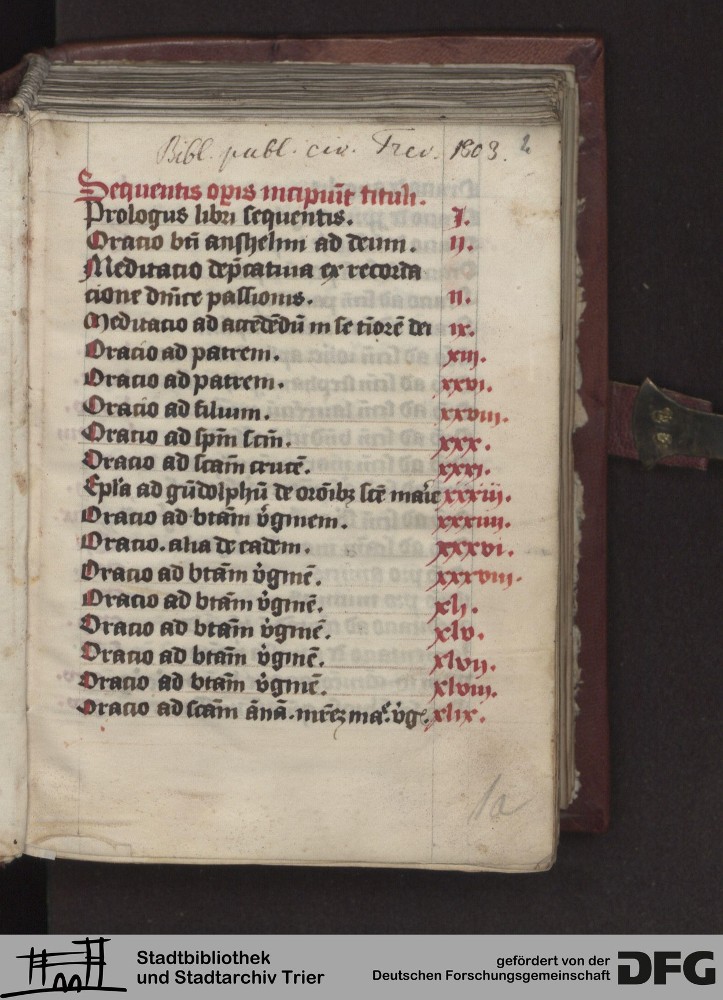 Bibl. publ. civ. Trev. 1803. 2
Sequentis op̄is incipiūt tituli.
Prologus libri sequentis. I.
Oracio bti᷑ anshelmi ad deum. ii.
Meditacio dep̄catiua ex recorda
cione dn̄ice passionis. ii.
Meditacio ad accedēdū in se tīorē dei ix.
Oracio ad patrem. xiii.
Oracio ad patrem. xxvi.
Oracio ad filium. xxviii.
Oracio ad sp̄m sc̄m. xxx.
Oracio ad sc̄am crucē. xxxi.
Epl'a ad gūdolphū de orōibꝫ sc̄e marie xxxiii.
Oracio ad btām v̓ginem. xxxiiii.
Oracio. alia de eadem. xxxvi.
Oracio ad btām v̓ginē. xxxviii.
Oracio ad btām v̓ginē. xli.
Oracio ad btām v̓ginē. xlv.
Oracio ad btām v̓ginē. xlvii.
Oracio ad btām v̓ginē. xlviii.
Oracio ad sc̄am ānā. mr̄eꝫ ma᷑. v̓g. xlix.
1a
Stadtbibliothek
und Stadtarchiv Trier
gefördert von der
Deutschen Forschungsgemeinschaft
DFG